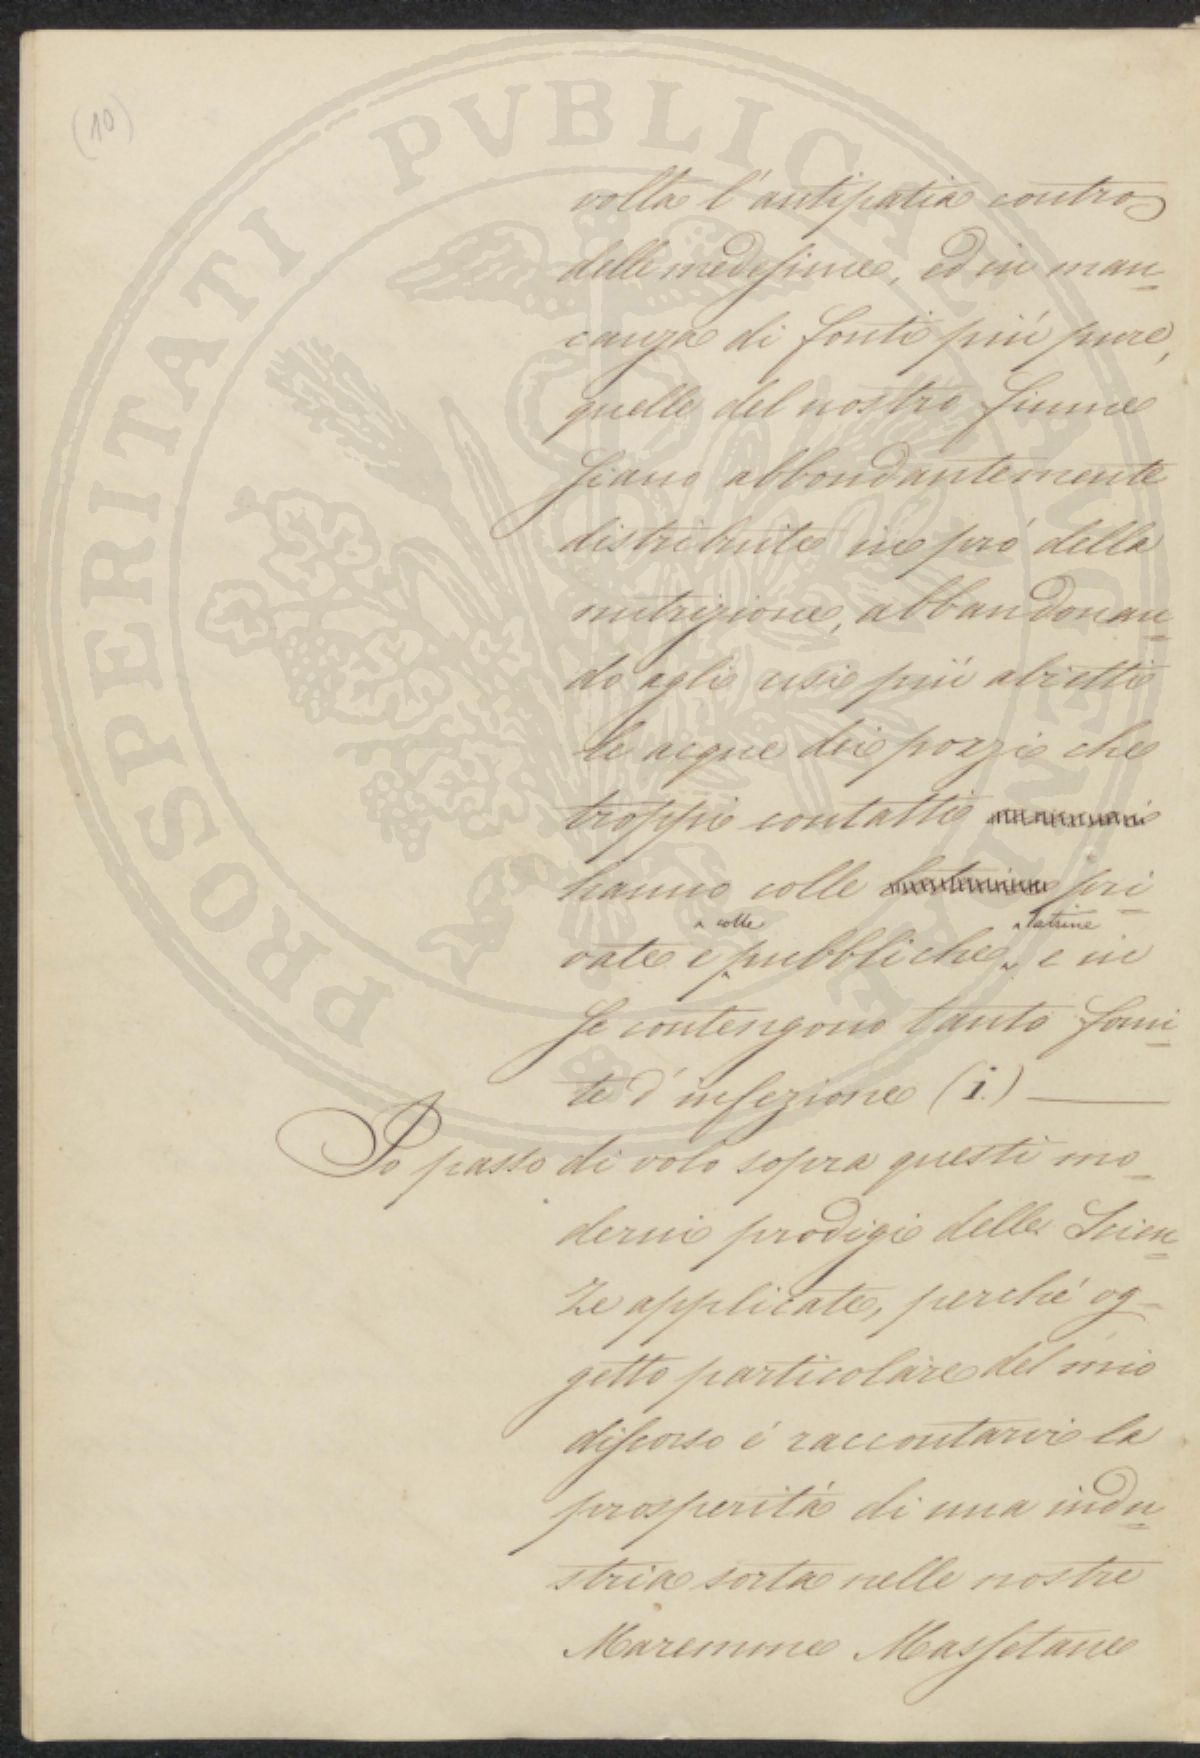 (10)
volta l'antipatia contro
delle medesime, ed in man-
canza di fonti più pure,
quelle del nostro fiume
siano abbondantemente
distribuite in pró della
nutrizione, abbandonan-
do agli usi più abietti
le acque dei pozzi che
troppi contatti
hanno colle latrine pri-
colle latrine
vate e pubbliche, e in
se contengono tanto fomi-
te d'infezione (1.)
Io passo di volo sopra questi mo-
derni prodigi delle Scien-
ze applicate, perché og-
getto particolare del mio
discorso é raccontarvi la
prosperitá di una indu-
stria sorta nelle nostre
Maremme Massetane
PROSPERITATI PUBLICAE AUGENDAE